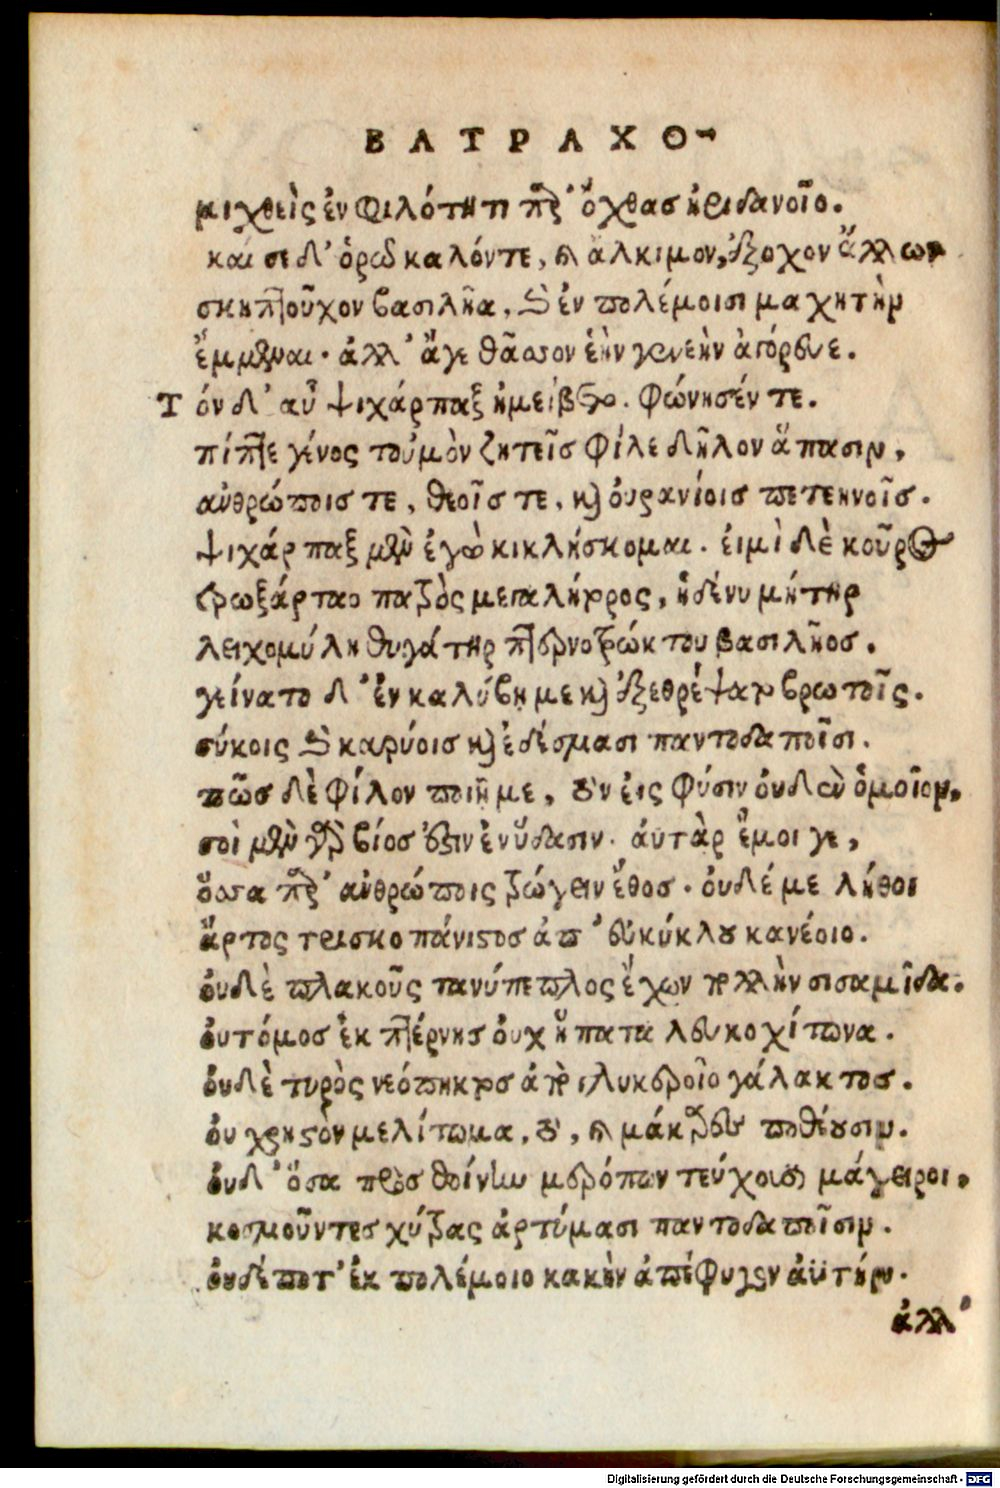 ΒΑΤΡΑΧΟ-
μιχθεὶς ἐν φιλότητι παρ' ὄχθας ἠριδανοῖο.
καί σε δ' ὁρῶ καλόν τε, καὶ ἄλκιμον, ἔξοχον ἄλλων
σκηπτοῦχον βασιλῆα, καὶ ἐν πολέμοισι μαχητὴν
ἔμμεναι. ἀλλ' ἄγε θᾶσσον ἑὴν γενεὴν ἀγόρευε.
Τόν δ' αὖ ψιχάρπαξ ἠμείβετο. φώνησέν τε.
τίπτε γένος τοὐμὸν ζητεῖς φίλε δῆλον ἅπασιν,
ἀνθρώποις τε, θεοῖς τε, καὶ οὐρανίοις πετεηνοῖς.
ψιχάρπαξ μὲν ἐγὼ κικλήσκομαι. εἰμὶ δὲ κοῦρος
τρωξάρταο πατρὸς μεγαλήτορος, ἡ δέ νυ μήτηρ
λειχομύλη θυγάτηρ πτερνοτρώκτου βασιλῆος.
γείνατο δ' ἐν καλύβῃ με καὶ ἐξεθρέψατο βρωτοῖς.
σύκοις καὶ καρύοις καὶ ἐδέσμασι παντοδαποῖσι.
πῶς δὲ φίλον ποιῇ με, τὸν εἰς φύσιν οὐδὲν ὁμοῖον,
σοὶ μὲν γὰρ βίος ἐστὶν ἐν ὕδασιν. αὐτὰρ ἔμοιγε,
ὅσσα παρ' ἀνθρώποις τρώγειν ἔθος. οὐδέ με λήθει
ἄρτος τρισκοπάνιστος ἀπ' εὐκύκλου κανέοιο.
οὐδὲ πλακοῦς τανύπεπλος ἔχων πολλὴν σισαμῖδα.
οὐ τόμος ἐκ πτέρνης οὐχ ἥπατα λευκοχίτωνα.
οὐδὲ τυρὸς νεόπηκτος ἀπὸ γλυκεροῖο γάλακτος.
οὐ χρηστὸν μελίτωμα, τὸ, καὶ μάκαρες ποθέουσιν.
οὐδ' ὅσα πρὸς θοίνην μερόπων τεύχουσι μάγειροι,
κοσμοῦντες χύτρας ἀρτύμασι παντοδαποῖσιν.
οὐδέποτ' ἐκ πολέμοιο κακὴν ἀπέφυγεν ἀϋτήν.
ἀλλ'
Digitalisierung gefördert durch die Deutsche Forschungsgemeinschaft - DFG